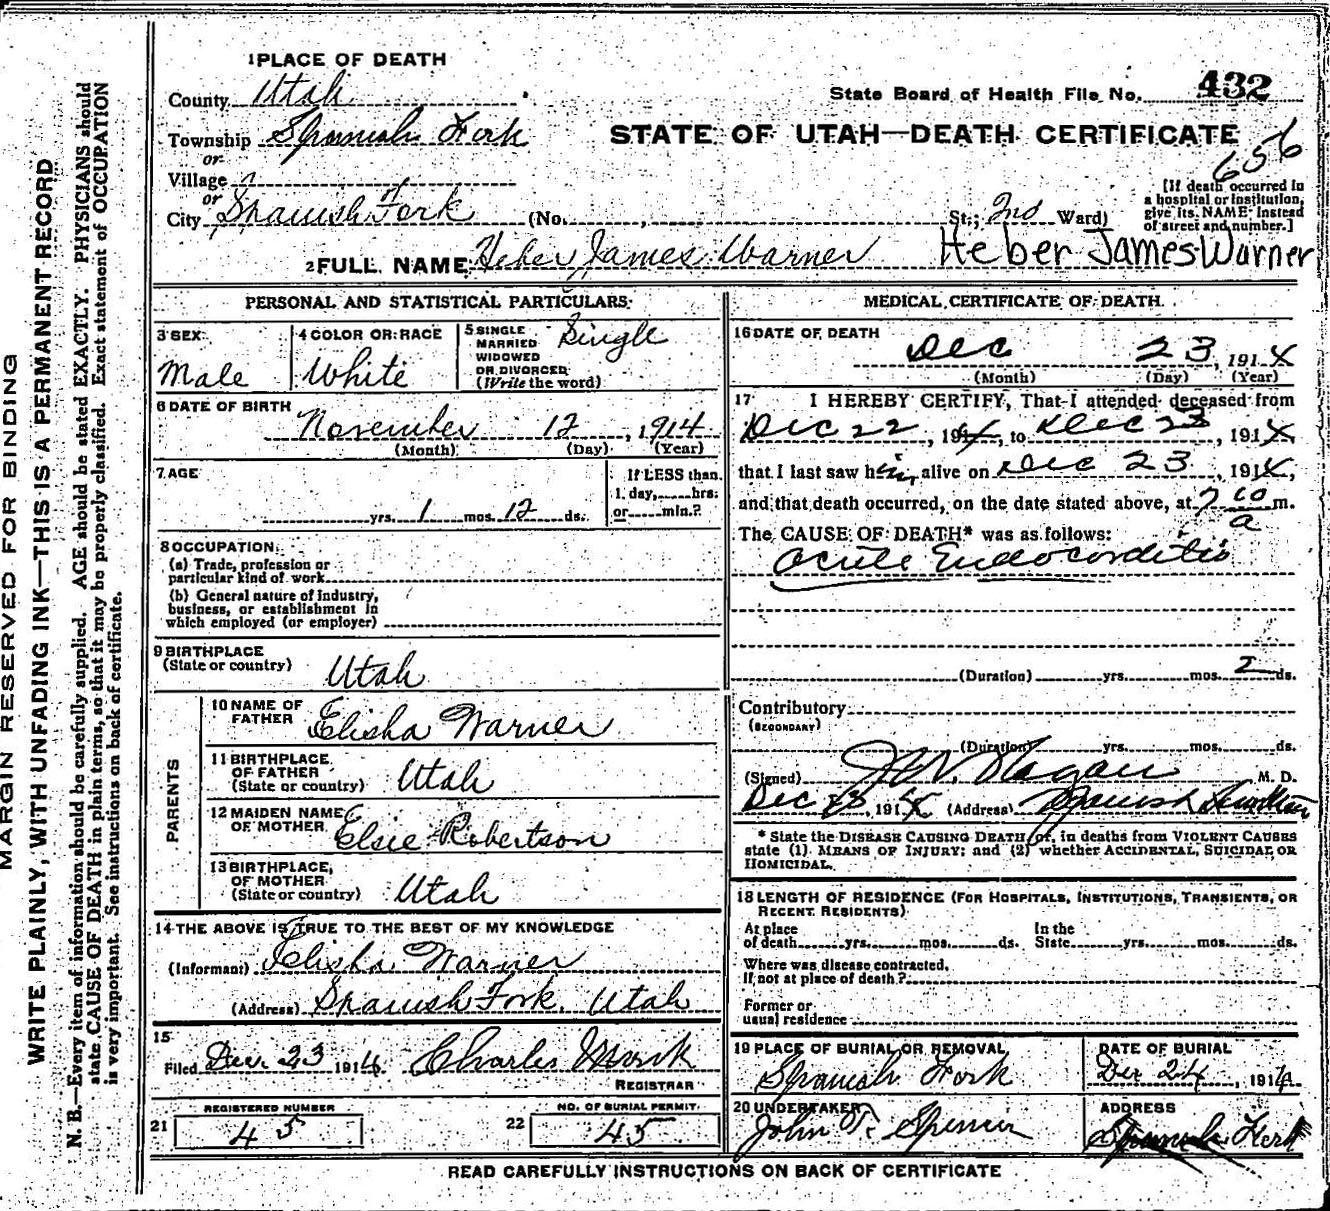 MARGIN RESERVED FOR BINDING
WRITE PLAINLY, WITH UNFADING INK—THIS IS A PERMANENT RECORD
N. B.—Every item of information should be carefully supplied. AGE should be stated EXACTLY. PHYSICIANS should
state CAUSE OF DEATH in plain terms, so that it may be properly classified. Exact statement of OCCUPATION
is very important. See instructions on back of certificate.
1 PLACE OF DEATH
County Utah
Township Spanish Fork
or
Village
or
City Spanish Fork (No. St.; 2nd Ward)
State Board of Health File No. 432
STATE OF UTAH—DEATH CERTIFICATE
656
[If death occurred in
a hospital or institution,
give its NAME instead
of street and number.]
2 FULL NAME Heber James Warner Heber James Warner
PERSONAL AND STATISTICAL PARTICULARS
3 SEX
Male
4 COLOR OR RACE
White
5 SINGLE
MARRIED
WIDOWED
OR DIVORCED
(Write the word)
Single
6 DATE OF BIRTH
November 12, 1914
(Month) (Day) (Year)
7 AGE
yrs. 1 mos. 12 ds.
If LESS than
1 day, hrs.
or min.?
8 OCCUPATION
(a) Trade, profession or
particular kind of work
(b) General nature of industry,
business, or establishment in
which employed (or employer)
9 BIRTHPLACE
(State or country)
Utah
PARENTS
10 NAME OF
FATHER
Elisha Warner
11 BIRTHPLACE
OF FATHER
(State or country)
Utah
12 MAIDEN NAME
OF MOTHER
Elsie Robertson
13 BIRTHPLACE
OF MOTHER
(State or country)
Utah
14 THE ABOVE IS TRUE TO THE BEST OF MY KNOWLEDGE
(Informant) Elisha Warner
(Address) Spanish Fork, Utah
15
Filed Dec. 23 1914 Charles
REGISTRAR
REGISTERED NUMBER
21 45
NO. OF BURIAL PERMIT
22 45
MEDICAL CERTIFICATE OF DEATH
16 DATE OF DEATH
Dec 23, 1914
(Month) (Day) (Year)
17 I HEREBY CERTIFY, That I attended deceased from
Dec 22, 1914, to Dec 23, 1914
that I last saw him alive on Dec 23, 1914,
and that death occurred, on the date stated above, at 7 00 a m.
The CAUSE OF DEATH* was as follows:
Acute Endocorditis
(Duration) yrs. mos. 2 ds.
Contributory
(SECONDARY)
(Duration) yrs. mos. ds.
(Signed) Hagan M. D.
Dec 23, 1914 (Address) Spanish
* State the DISEASE CAUSING DEATH or, in deaths from VIOLENT CAUSES
state (1) MEANS OF INJURY; and (2) whether ACCIDENTAL, SUICIDAL OR
HOMICIDAL.
18 LENGTH OF RESIDENCE (FOR HOSPITALS, INSTITUTIONS, TRANSIENTS, OR
RECENT RESIDENTS)
At place
of death yrs. mos. ds.
In the
State yrs. mos. ds.
Where was disease contracted,
If not at place of death?
Former or
usual residence
19 PLACE OF BURIAL OR REMOVAL
Spanish Fork
DATE OF BURIAL
Dec 24, 1914
20 UNDERTAKER
John T. Spencer
ADDRESS
Spanish Fork
READ CAREFULLY INSTRUCTIONS ON BACK OF CERTIFICATE